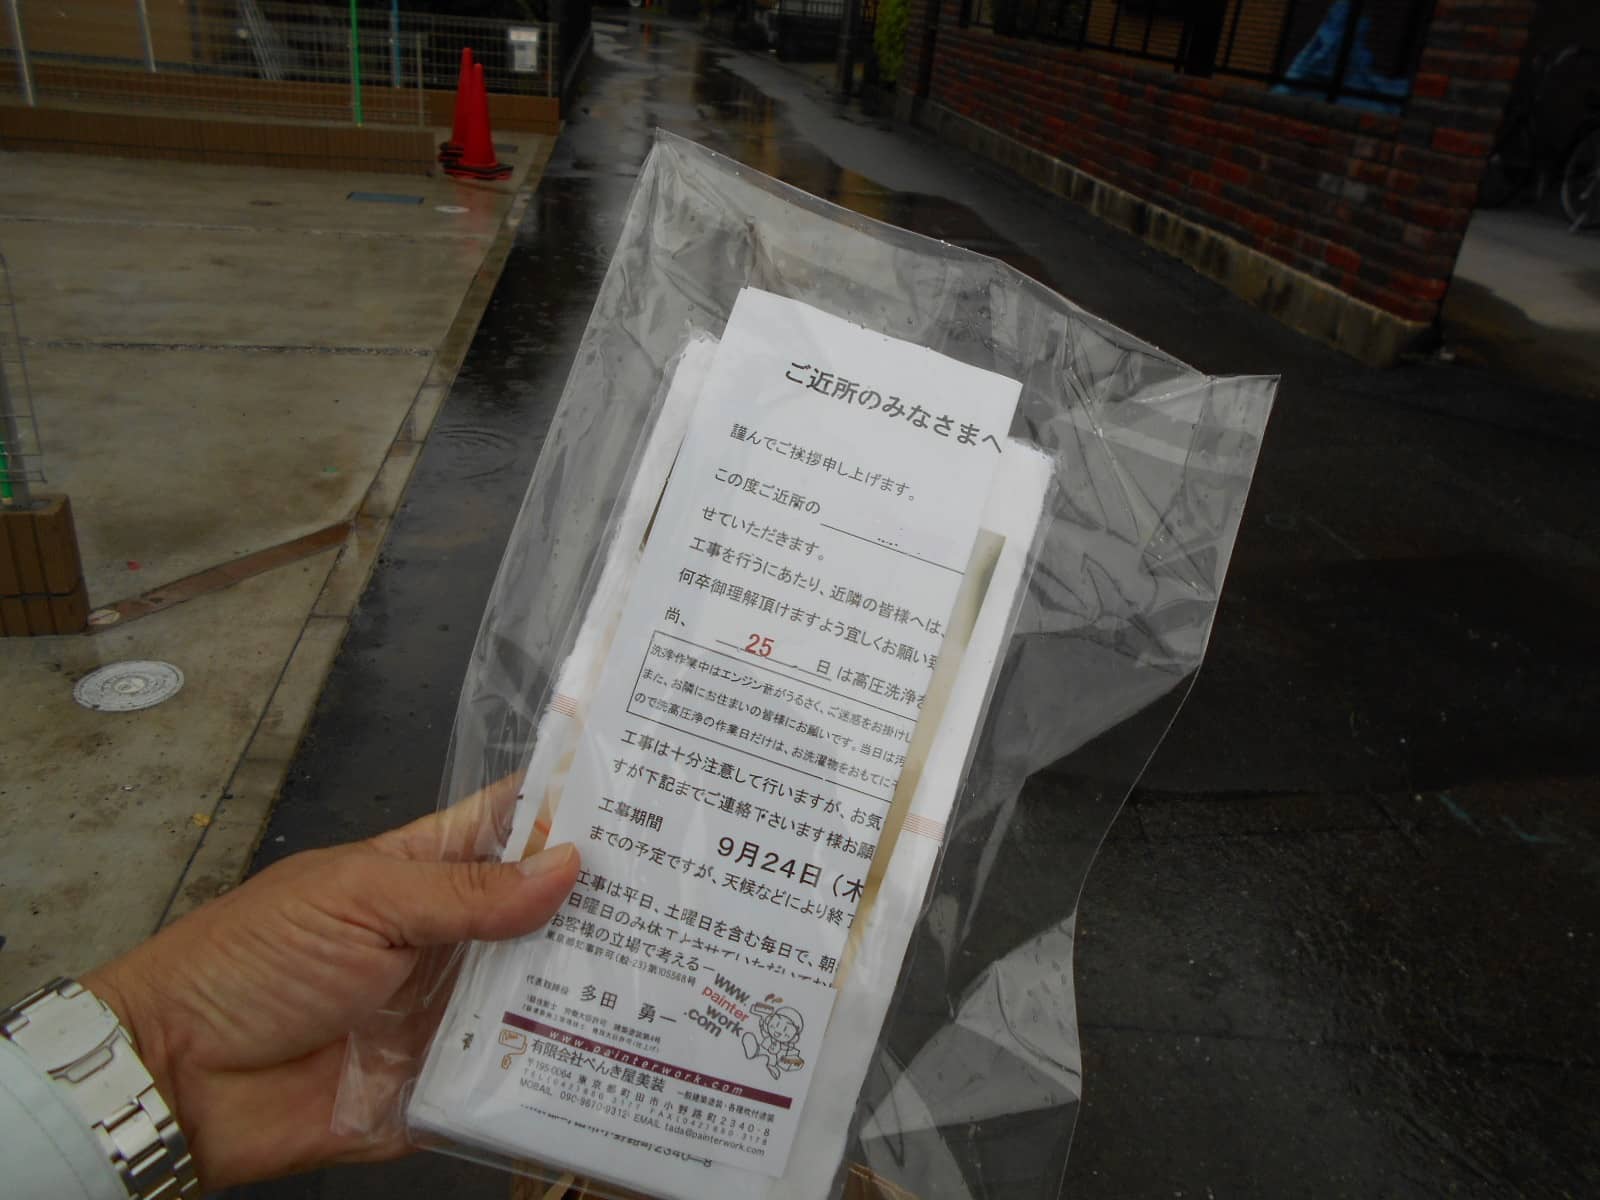 ご近所のみなさまへ
謹んでご挨拶申し上げます。
この度ご近所の
せていただきます。
工事を行うにあたり、近隣の皆様へは、
何卒御理解頂けますよう宜しくお願い致
尚、 25 日 は高圧洗浄を
洗浄作業中はエンジン音がうるさく、ご迷惑をお掛けし
また、お隣にお住まいの皆様にお願いです。当日は汚
ので洗高圧浄の作業日だけは、お洗濯物をおもてに干
工事は十分注意して行いますが、お気
すが下記までご連絡下さいます様お願
工事期間 9月24日(木
までの予定ですが、天候などにより終了
工事は平日、土曜日を含む毎日で、朝
日曜日のみ休工とさせていただいてお
お客様の立場で考える
東京都知事許可(般-23)第105568号
代表取締役 多田 勇一
www.
painter
work
.com
www.painterwork.com
有限会社ぺんき屋美装 一般建築塗装・各種吹付塗装
〒195-0064 東京都町田市小野路町2340-8
MOBAIL 090-9670-9312・EMAIL tada@painterwork.com